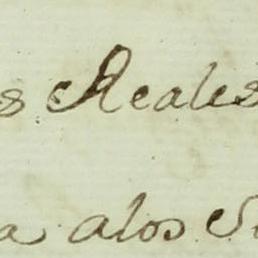 s Reales
a alos S